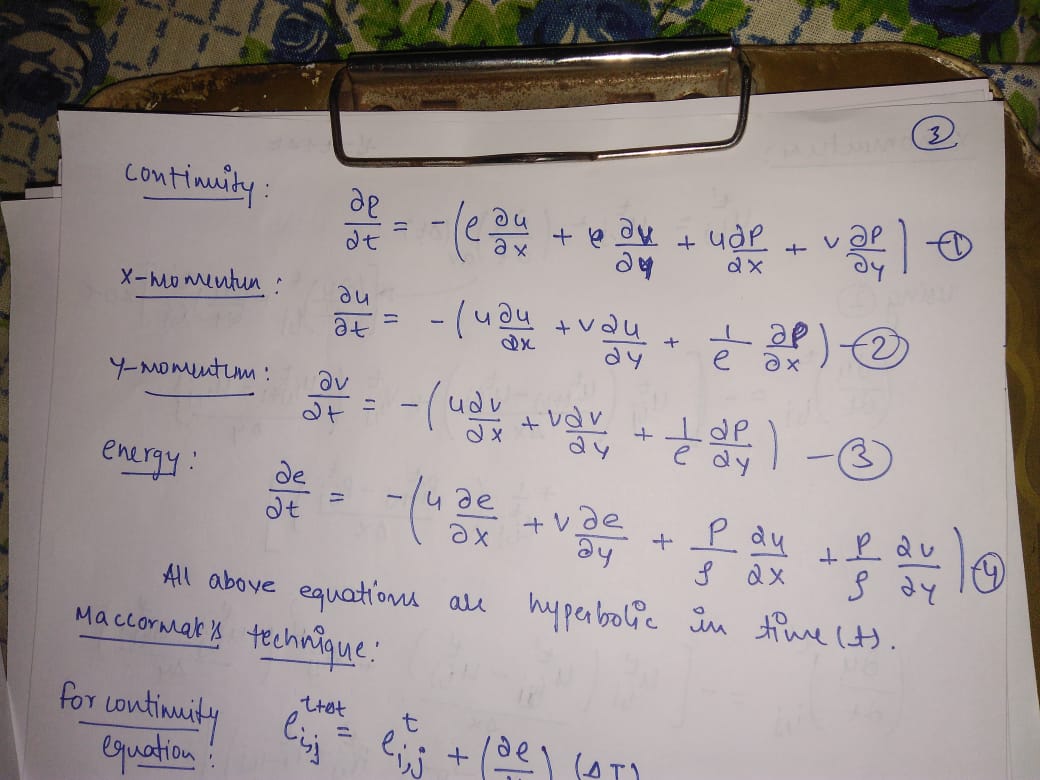 3
continuity:
∂ρ/∂t = -(ρ ∂u/∂x + ρ ∂v/∂y + u ∂ρ/∂x + v ∂ρ/∂y) -①
X-momentum:
∂u/∂t = -(u ∂u/∂x + v ∂u/∂y + 1/ρ ∂p/∂x) -②
Y-momentum:
∂v/∂t = -(u ∂v/∂x + v ∂v/∂y + 1/ρ ∂p/∂y) -③
energy:
∂e/∂t = -(u ∂e/∂x + v ∂e/∂y + p/ρ ∂u/∂x + p/ρ ∂v/∂y) ④
All above equations are hyperbolic in time (t).
Maccormak's technique:
for continuity
equation:
ρi,j^t+Δt = ρi,j^t + (∂ρ/) (ΔT)